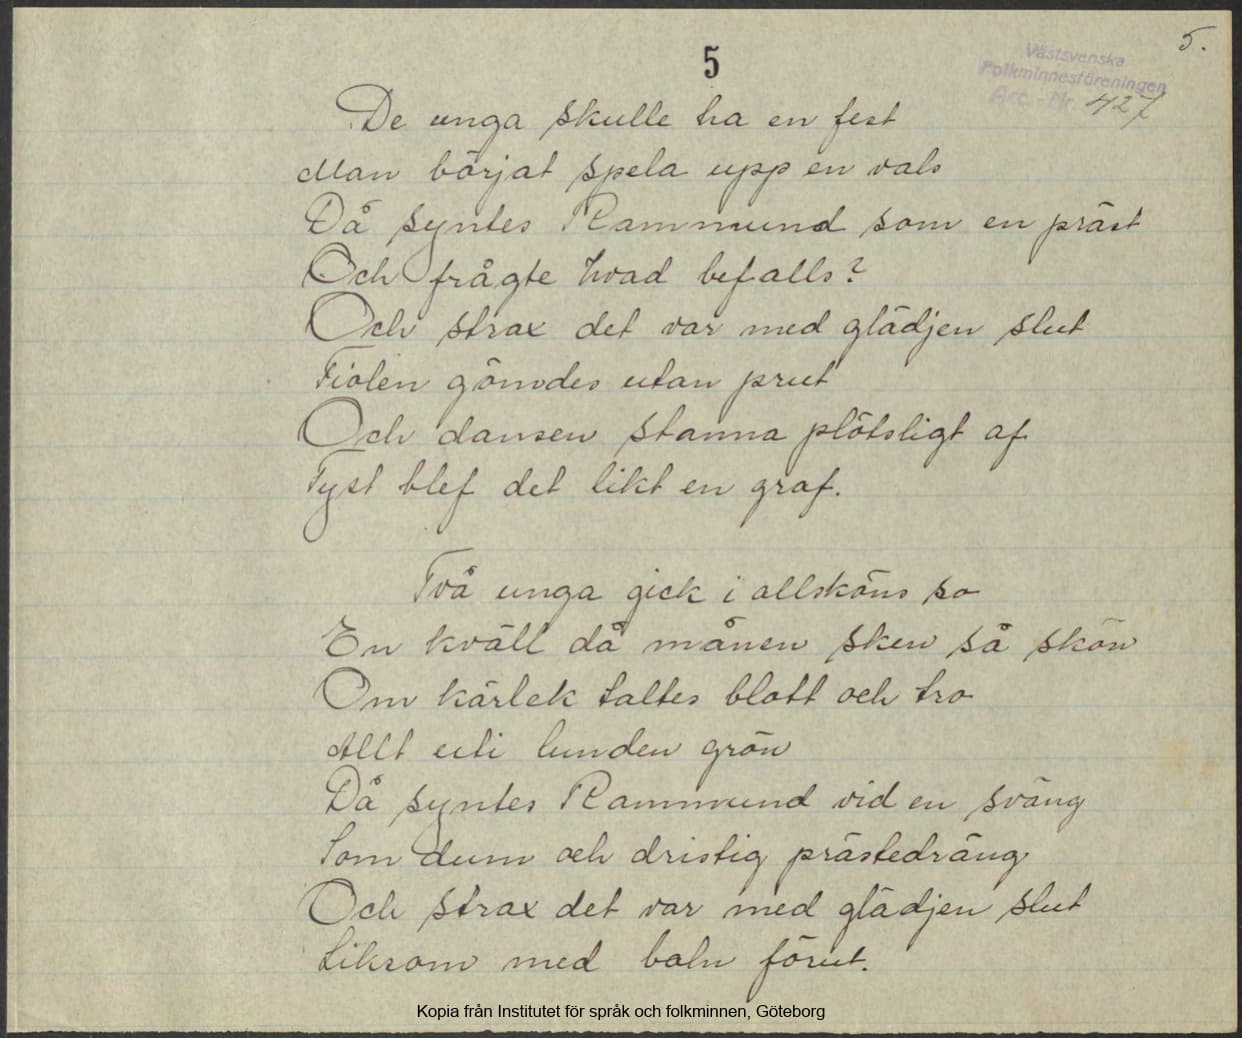 5.
5
Västsvenska
Folkminnesföreningen
Acc. - Nr. 427
De unga skulle ha en fest
Man börjat spela upp en vals
Då syntes Rammund som en präst
Och frågte hvad befalls?
Och strax det var med glädjen slut
Fiolen gömdes utan prut
Och dansen stanna plötsligt af
Tyst blef det likt en graf.
Två unga gick i allsköns ro
En kväll då månen sken så skön
Om kärlek taltes blott och tro
Allt uti lunden grön
Då syntes Rammund vid en sväng
Som dum och dristig prästedräng
Och strax det var med glädjen slut
Liksom med baln förut.
Kopia från Institutet för språk och folkminnen, Göteborg